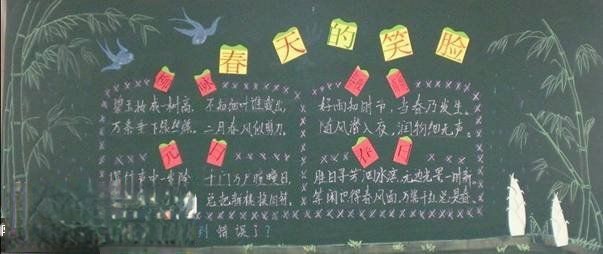 春天的笑脸
咏柳
碧玉妆成一树高，不知细叶谁裁出，
万条垂下绿丝绦。二月春风似剪刀。
好雨知时节，当春乃发生。
随风潜入夜，润物细无声。
元日
爆竹声中一岁除 千门万户曈曈日，
总把新桃换旧符。
春日
胜日寻芳泗水滨，无边光景一时新，
等闲识得春风面，万紫千红总是春。
到错误了？